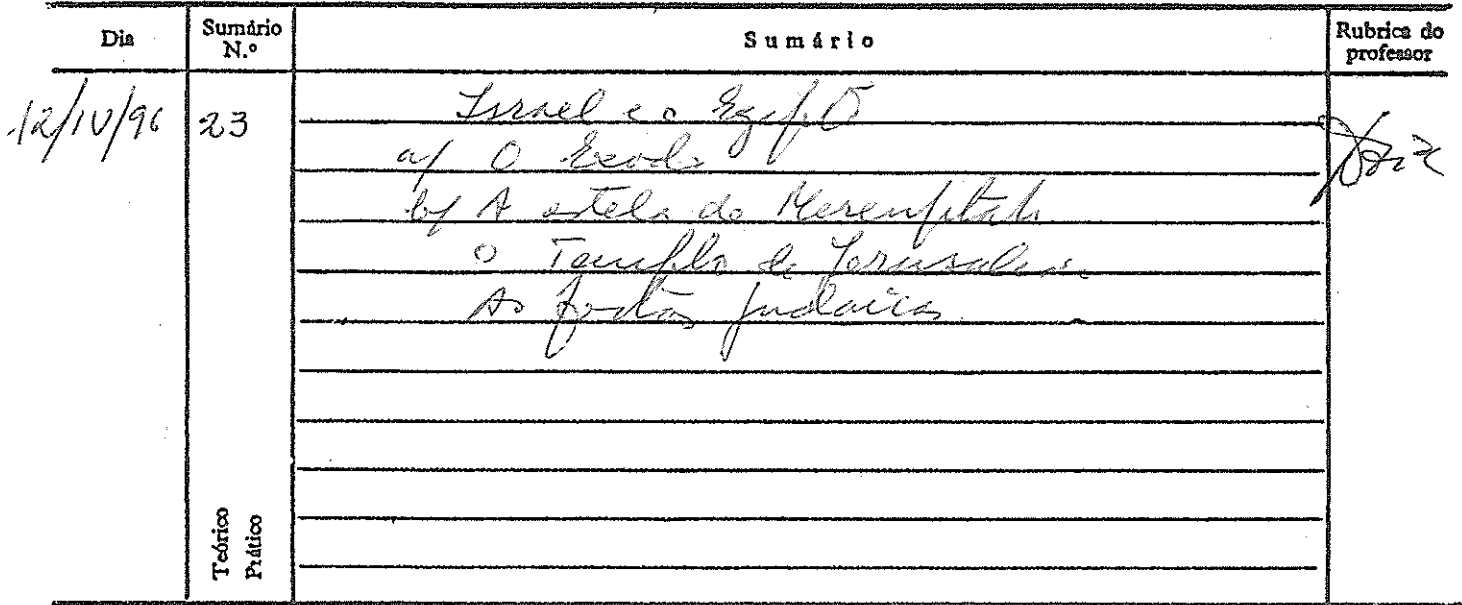 Dia Sumário N.º Sumário Rubrica do professor
12/IV/96 23 Israel e o Egipto
a/ O Êxodo
b/ A estela de Merenptah
O Templo de Jerusalém
As festas judaicas
Teórico
Prático